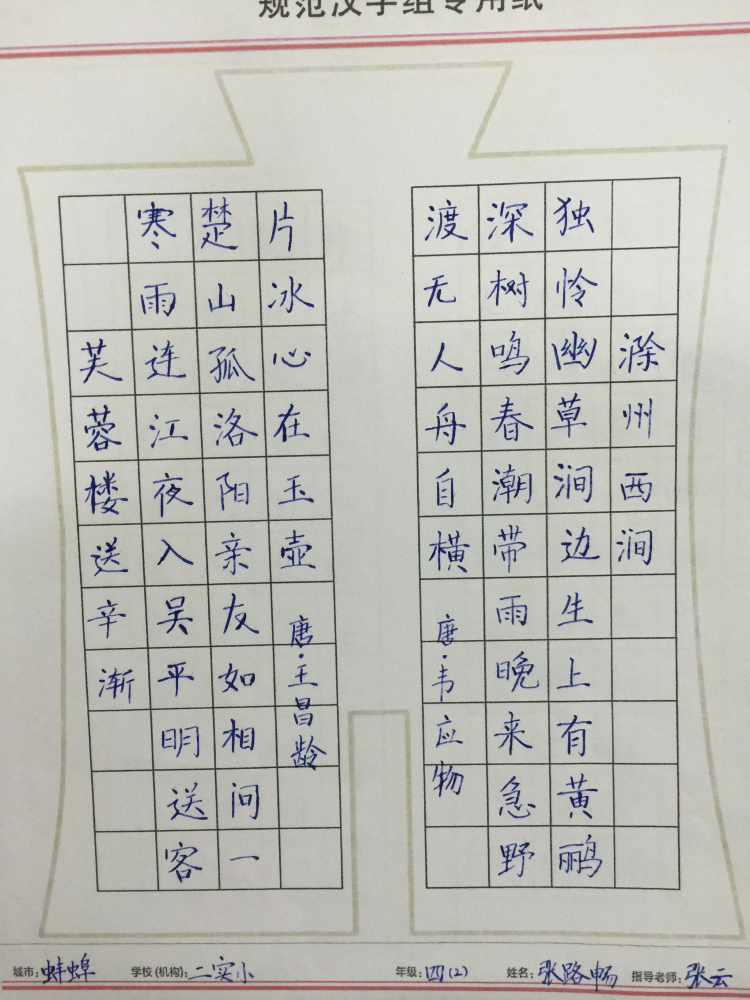 规范汉字组专用纸
芙蓉楼送辛渐
寒雨连江夜入吴平明送客
楚山孤洛阳亲友如相问一
片冰心在玉壶
唐·王昌龄
滁州西涧
独怜幽草涧边生上有黄鹂
深树鸣春潮带雨晚来急野
渡无人舟自横
唐·韦应物
城市:蚌埠 学校(机构):二实小 年级:四(2) 姓名:张路畅 指导老师:张云